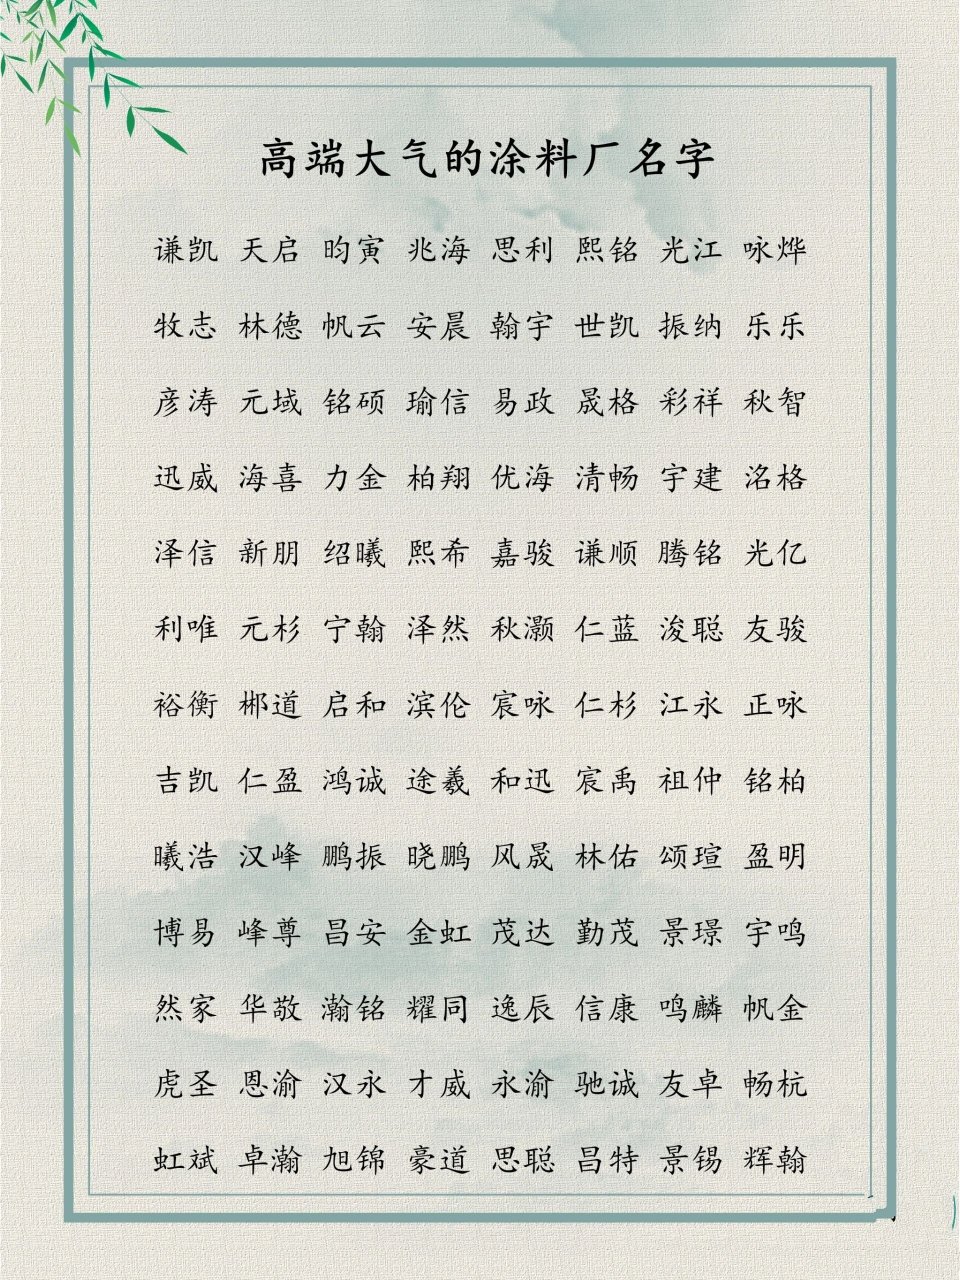 高端大气的涂料厂名字
谦凯 天启 昀寅 兆海 思利 熙铭 光江 咏烨
牧志 林德 帆云 安晨 翰宇 世凯 振纳 乐乐
彦涛 元域 铭硕 瑜信 易政 晟格 彩祥 秋智
迅威 海喜 力金 柏翔 优海 清畅 宇建 洺格
泽信 新朋 绍曦 熙希 嘉骏 谦顺 腾铭 光亿
利唯 元杉 宁翰 泽然 秋灏 仁蓝 浚聪 友骏
裕衡 郴道 启和 滨伦 宸咏 仁杉 江永 正咏
吉凯 仁盈 鸿诚 途羲 和迅 宸禹 祖仲 铭柏
曦浩 汉峰 鹏振 晓鹏 风晟 林佑 颂瑄 盈明
博易 峰尊 昌安 金虹 茂达 勤茂 景璟 宇鸣
然家 华敬 瀚铭 耀同 逸辰 信康 鸣麟 帆金
虎圣 恩渝 汉永 才威 永渝 驰诚 友卓 畅杭
虹斌 卓瀚 旭锦 豪道 思聪 昌特 景锡 辉翰